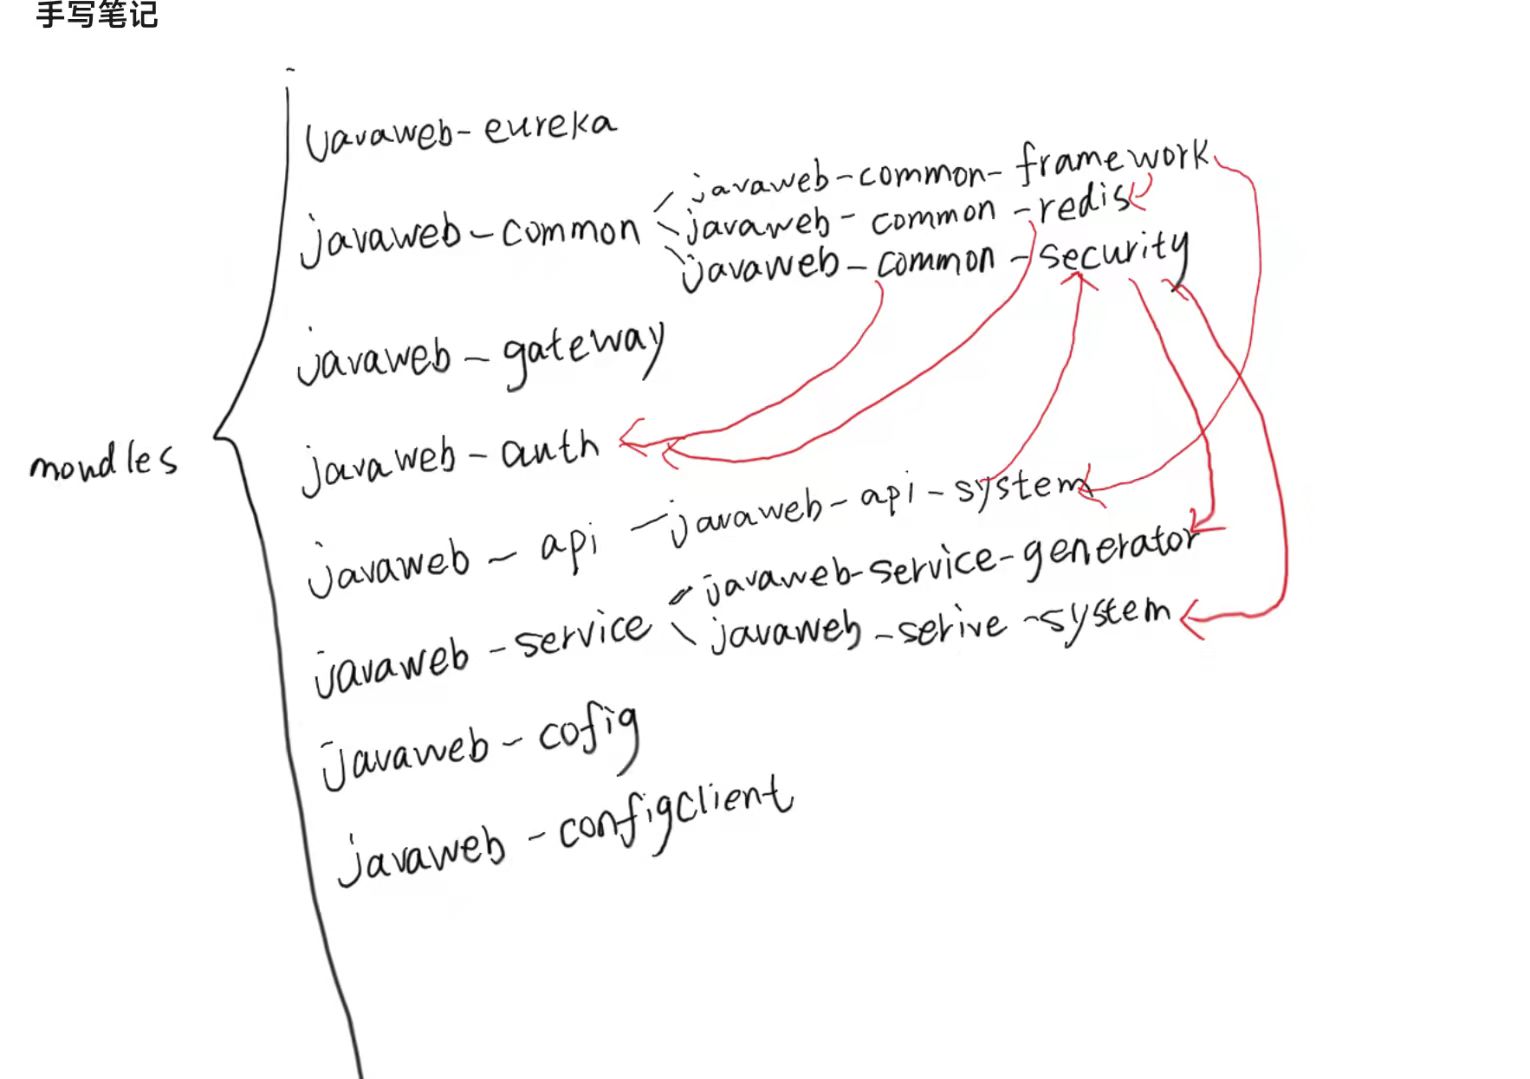 手写笔记
javaweb-eureka
javaweb-common
javaweb-common-framework
javaweb-common-redis
javaweb-common-security
javaweb-gateway
javaweb-auth
moudles
javaweb-api
javaweb-api-system
javaweb-service
javaweb-service-generator
javaweb-serive-system
javaweb-cofig
javaweb-configclient